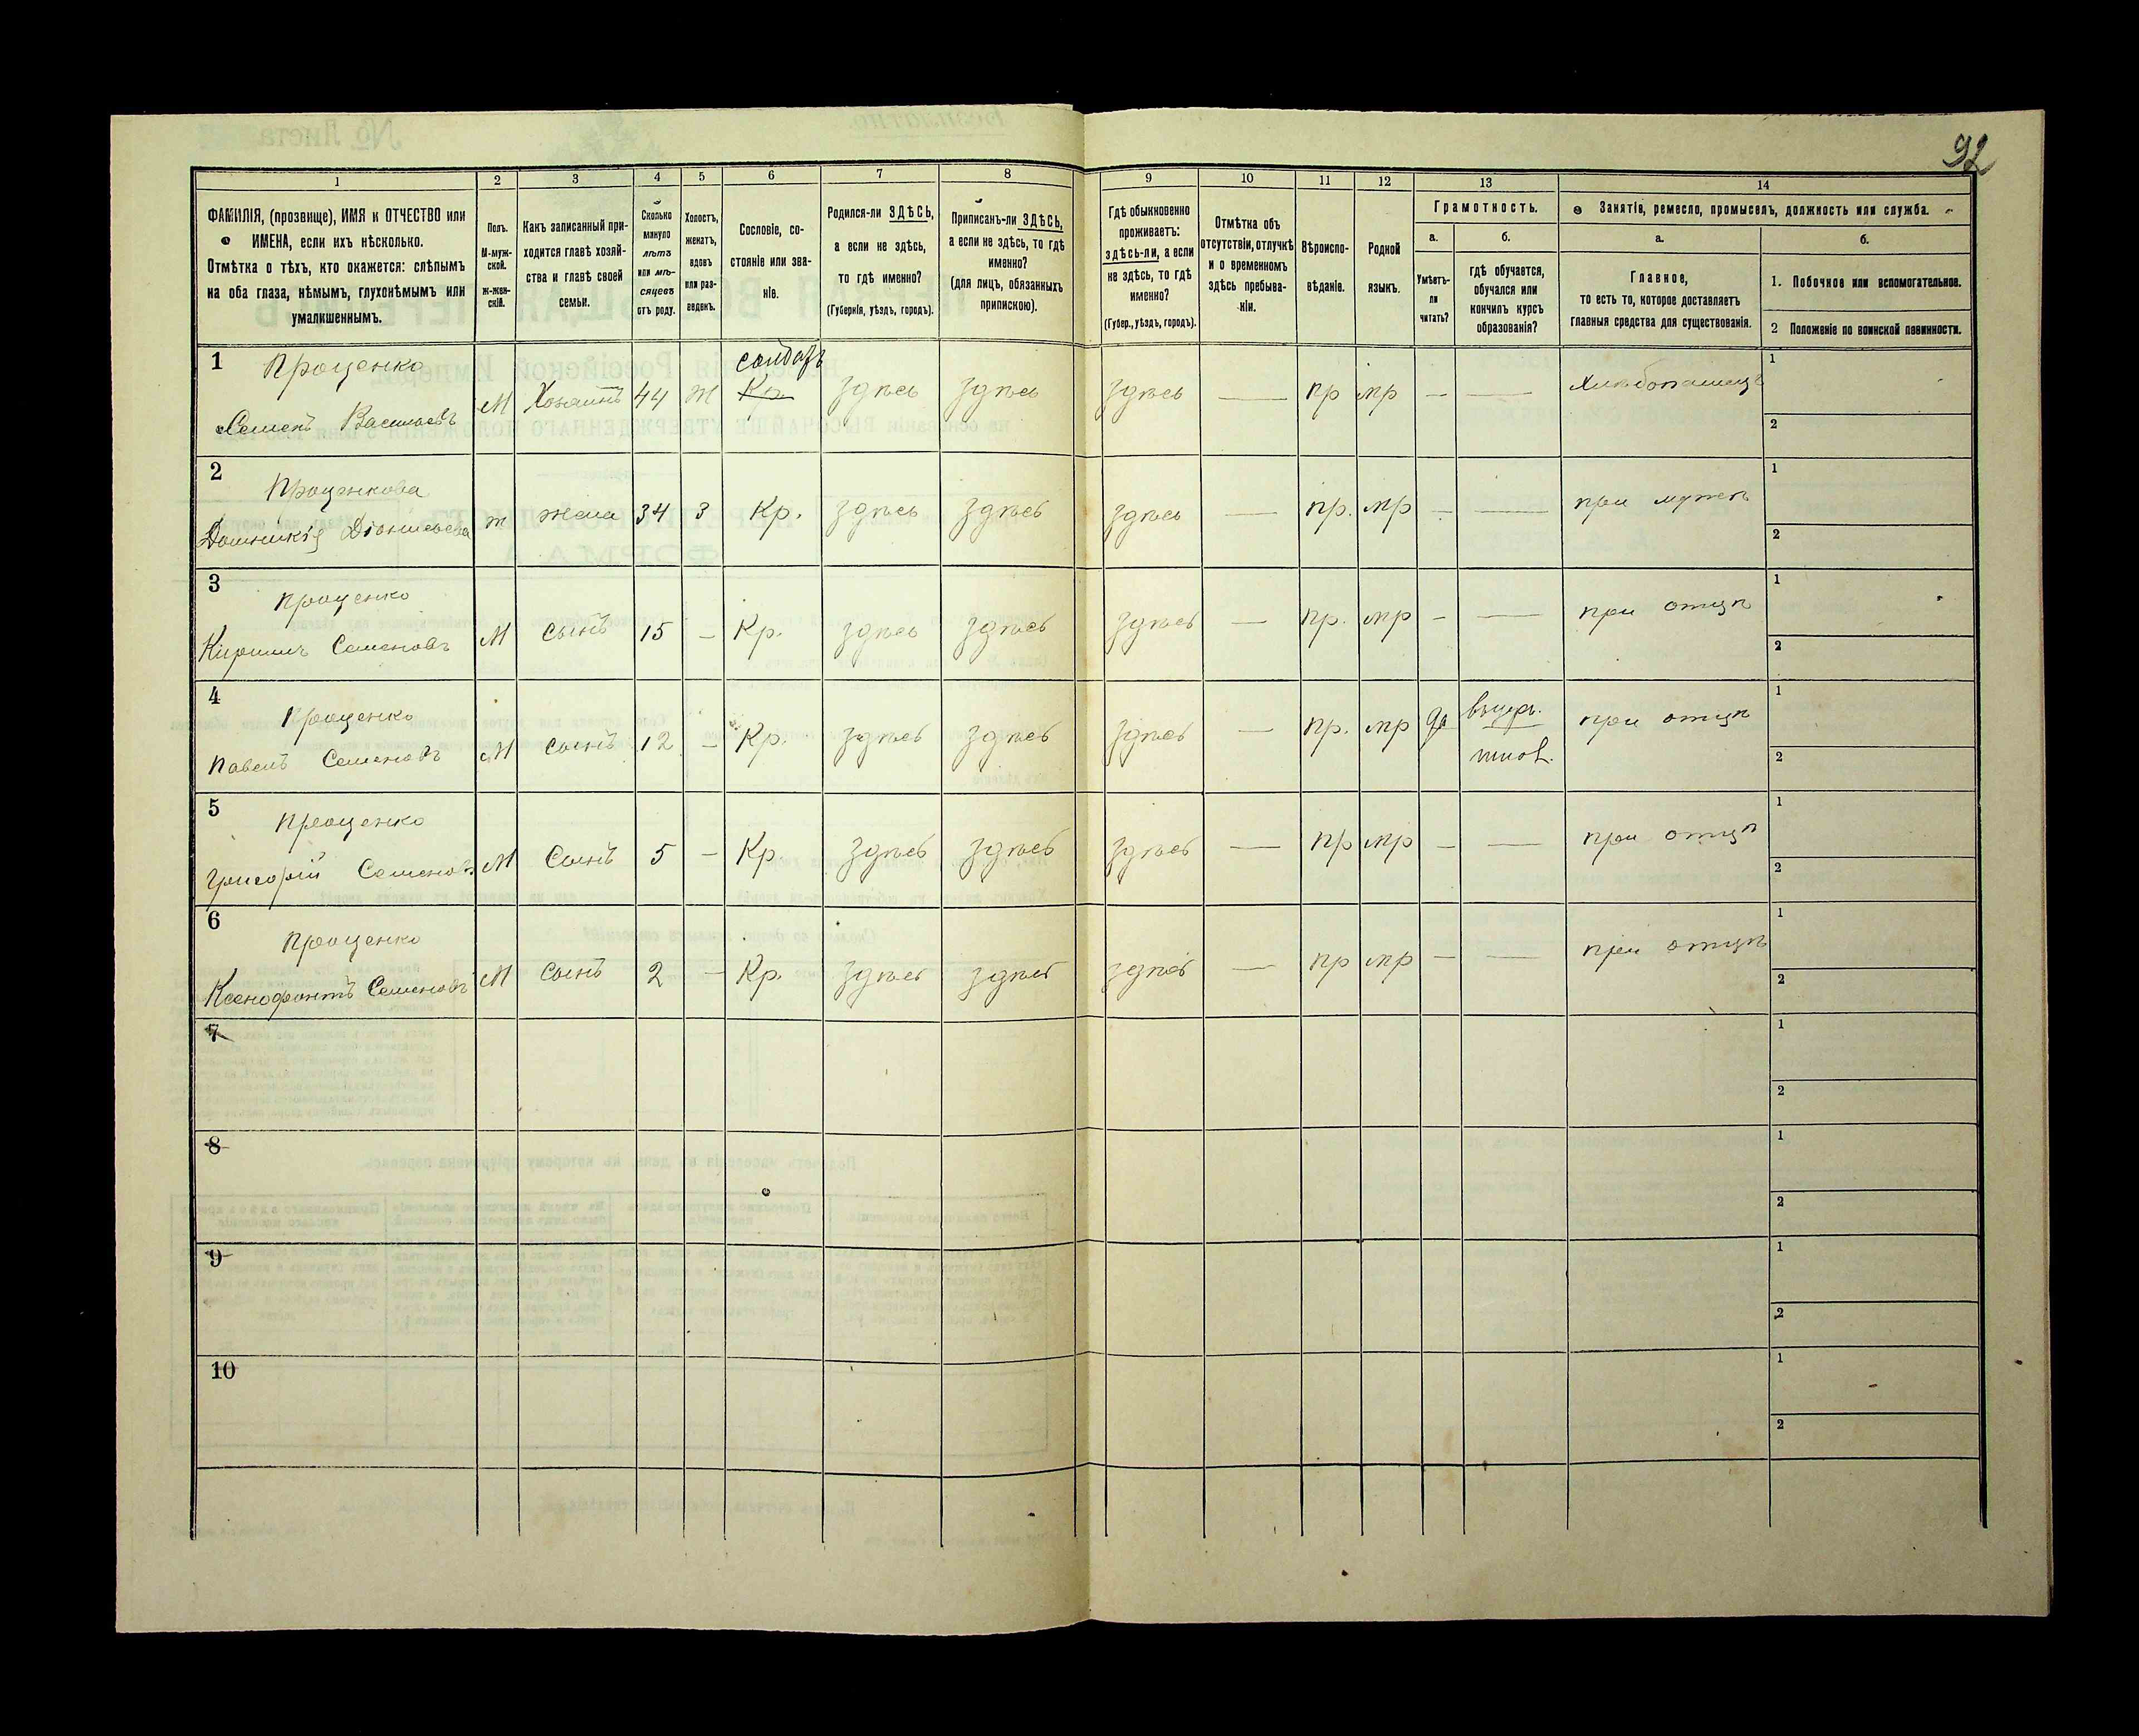 92
1 2 3 4 5 6 7 8 9 10 11 12 13 14
ФАМИЛІЯ, (прозвище), ИМЯ и ОТЧЕСТВО или
ИМЕНА, если ихъ нѣсколько.
Отмѣтка о тѣхъ, кто окажется: слѣпымъ
на оба глаза, нѣмымъ, глухонѣмымъ или
умалишеннымъ.
Полъ.
М-муж-
ской.
ж-жен-
скій.
Какъ записанный при-
ходится главѣ хозяй-
ства и главѣ своей
семьи.
Сколько
минуло
лѣтъ
или мѣ-
сяцевъ
отъ роду.
Холостъ,
женатъ,
вдовъ
или раз-
веденъ.
Сословіе, со-
стояніе или зва-
ніе.
Родился-ли ЗДѢСЬ,
а если не здѣсь,
то гдѣ именно?
(Губернія, уѣздъ, городъ).
Приписанъ-ли ЗДѢСЬ,
а если не здѣсь, то гдѣ
именно?
(для лицъ, обязанныхъ
припискою).
Гдѣ обыкновенно
проживаетъ:
здѣсь-ли, а если
не здѣсь, то гдѣ
именно?
(Губер., уѣздъ, городъ).
Отмѣтка объ
отсутствіи, отлучкѣ
и о временномъ
здѣсь пребыва-
ніи.
Вѣроиспо-
вѣданіе.
Родной
языкъ.
Грамотность.
а.
Умѣетъ-
ли
читать?
б.
гдѣ обучается,
обучался или
кончилъ курсъ
образованія?
Занятіе, ремесло, промыселъ, должность или служба.
а.
Главное,
то есть то, которое доставляетъ
главныя средства для существованія.
б.
1. Побочное или вспомогательное.
2 Положеніе по воинской повинности.
1 Проценко
солдатъ
Семенъ Васильевъ М Хозяинъ 44 Ж Кр. здѣсь здѣсь здѣсь — пр мр — — Хлѣбопашецъ 1
2
2 Проценкова
ж жена 34 З Кр. здѣсь здѣсь здѣсь — пр. мр — — при мужѣ 1
2
3 Проценко
Кирилъ Семеновъ М сынъ 15 — Кр. здѣсь здѣсь здѣсь — пр. мр — — при отцѣ 1
2
4 Проценко
Павелъ Семеновъ М сынъ 12 — Кр. здѣсь здѣсь здѣсь — пр. мр да при отцѣ 1
2
5 Проценко
Григорій Семеновъ М Сынъ 5 — Кр здѣсь здѣсь здѣсь — пр мр — — при отцѣ 1
2
6 Проценко
Ксенофонтъ Семеновъ М Сынъ 2 — Кр. здѣсь здѣсь здѣсь — пр мр — — при отцѣ 1
2
7 1
2
8 1
2
9 1
2
10 1
2